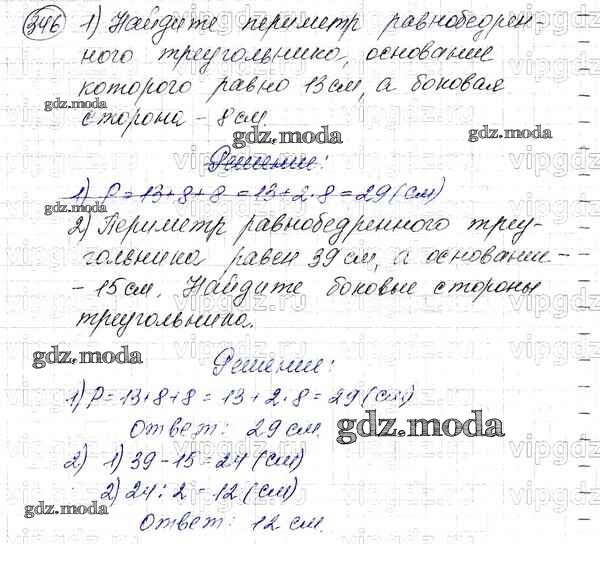 346 1) Найдите периметр равнобедрен-
ного треугольника, основание
которого равно 13 см, а боковая
gdz.moda
сторона - 8 см.
gdz.moda gdz.moda
Решение:
1) P = 13 + 8 + 8 = 13 + 2 · 8 = 29 (см)
gdz.moda
2) Периметр равнобедренного треу-
гольника равен 39 см, а основание -
- 15 см. Найдите боковые стороны
треугольника.
gdz.moda
Решение:
1) P = 13 + 8 + 8 = 13 + 2 · 8 = 29 (см)
Ответ: 29 см.
gdz.moda
2) 1) 39 - 15 = 24 (см)
2) 24 : 2 = 12 (см)
gdz.moda
Ответ: 12 см.